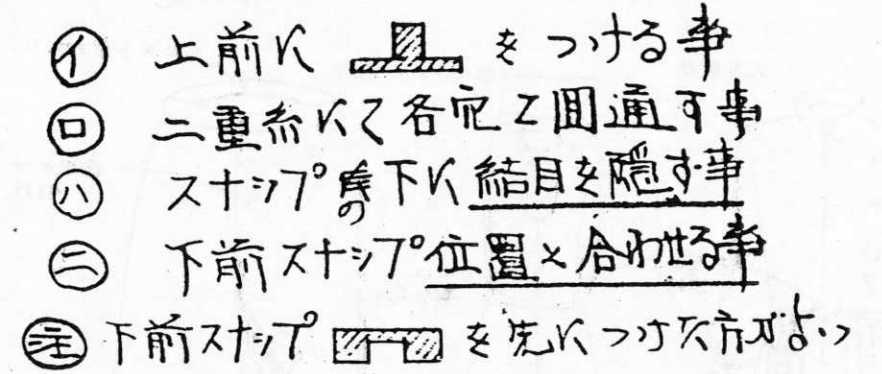 ㋑ 上前に を つける事
㋺ 二重糸にて各穴2回通す事
㋩ スナップの下に結目を隠す事
㋥ 下前スナップ位置と合わせる事
㊟ 下前スナップ を先につけた方がよい